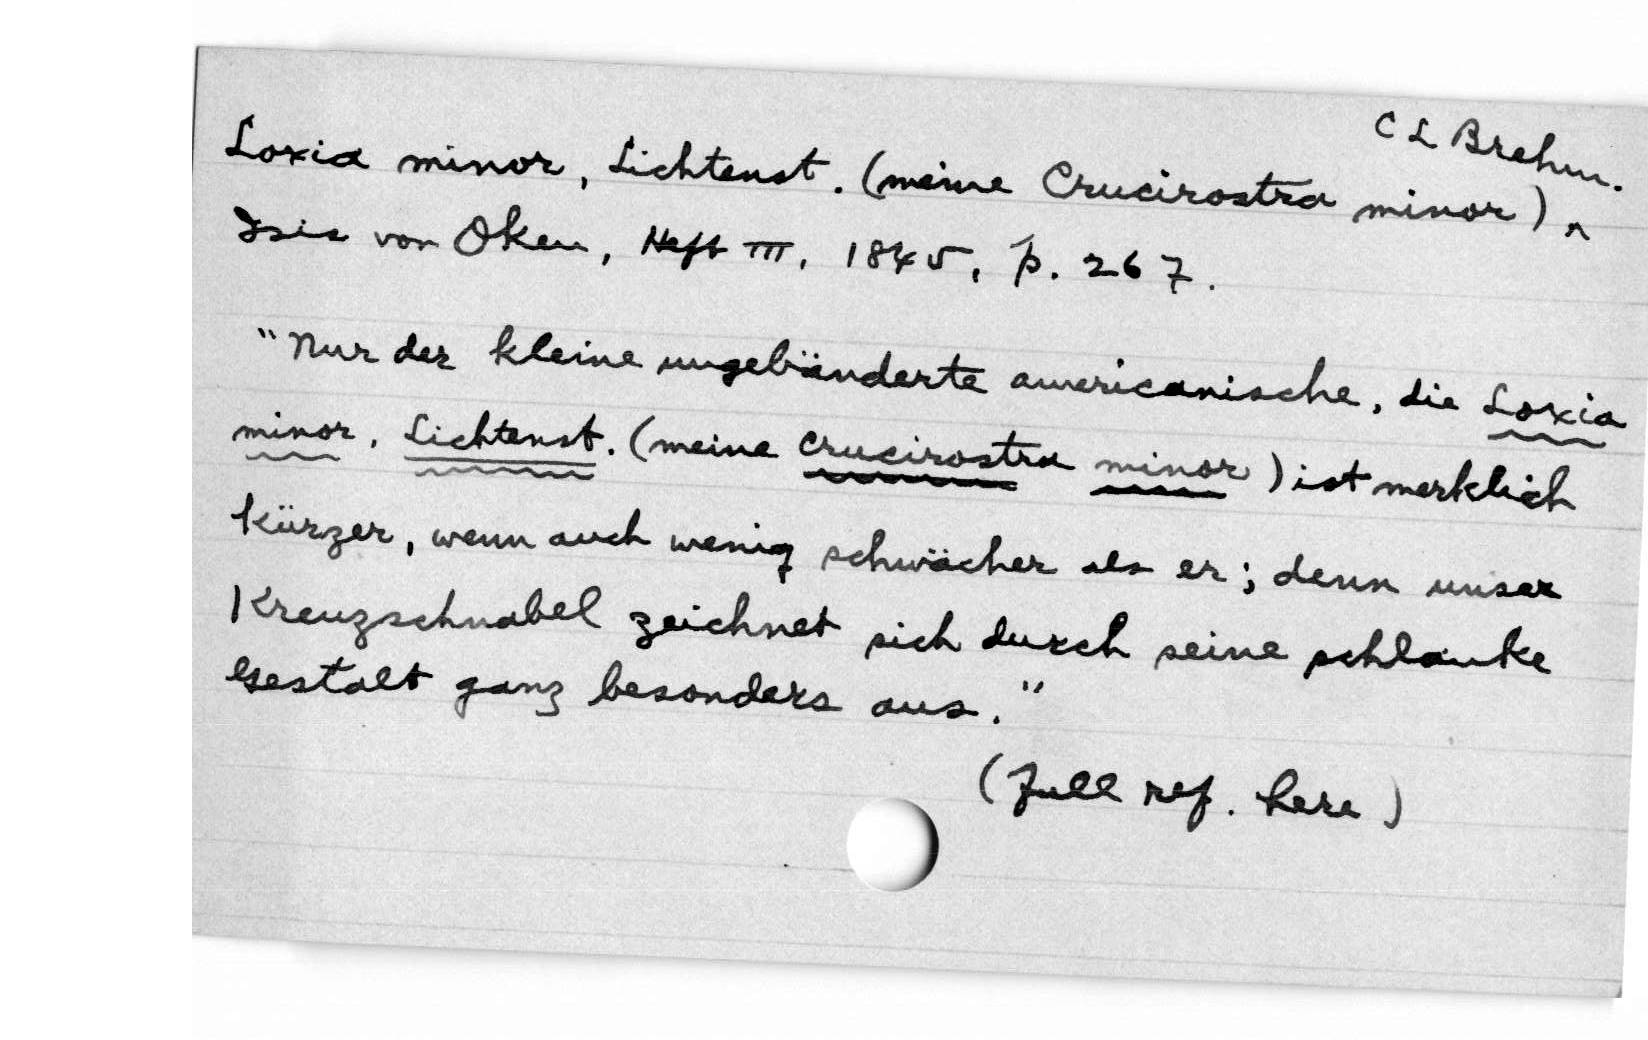 C L Brehm.
Loxia minor, Lichtenst. (meine Crucirostra minor) ^
Isis von Oken, Heft III, 1845, p. 267.
"Nur der kleine ungebänderte americanische, die Loxia
minor, Lichtenst. (meine Crucirostra minor) ist merklich
kürzer, wenn auch wenig schwächer als er; denn unser
Kreuzschnabel zeichnet sich durch seine schlanke
Gestalt ganz besonders aus."
(Full ref. here)